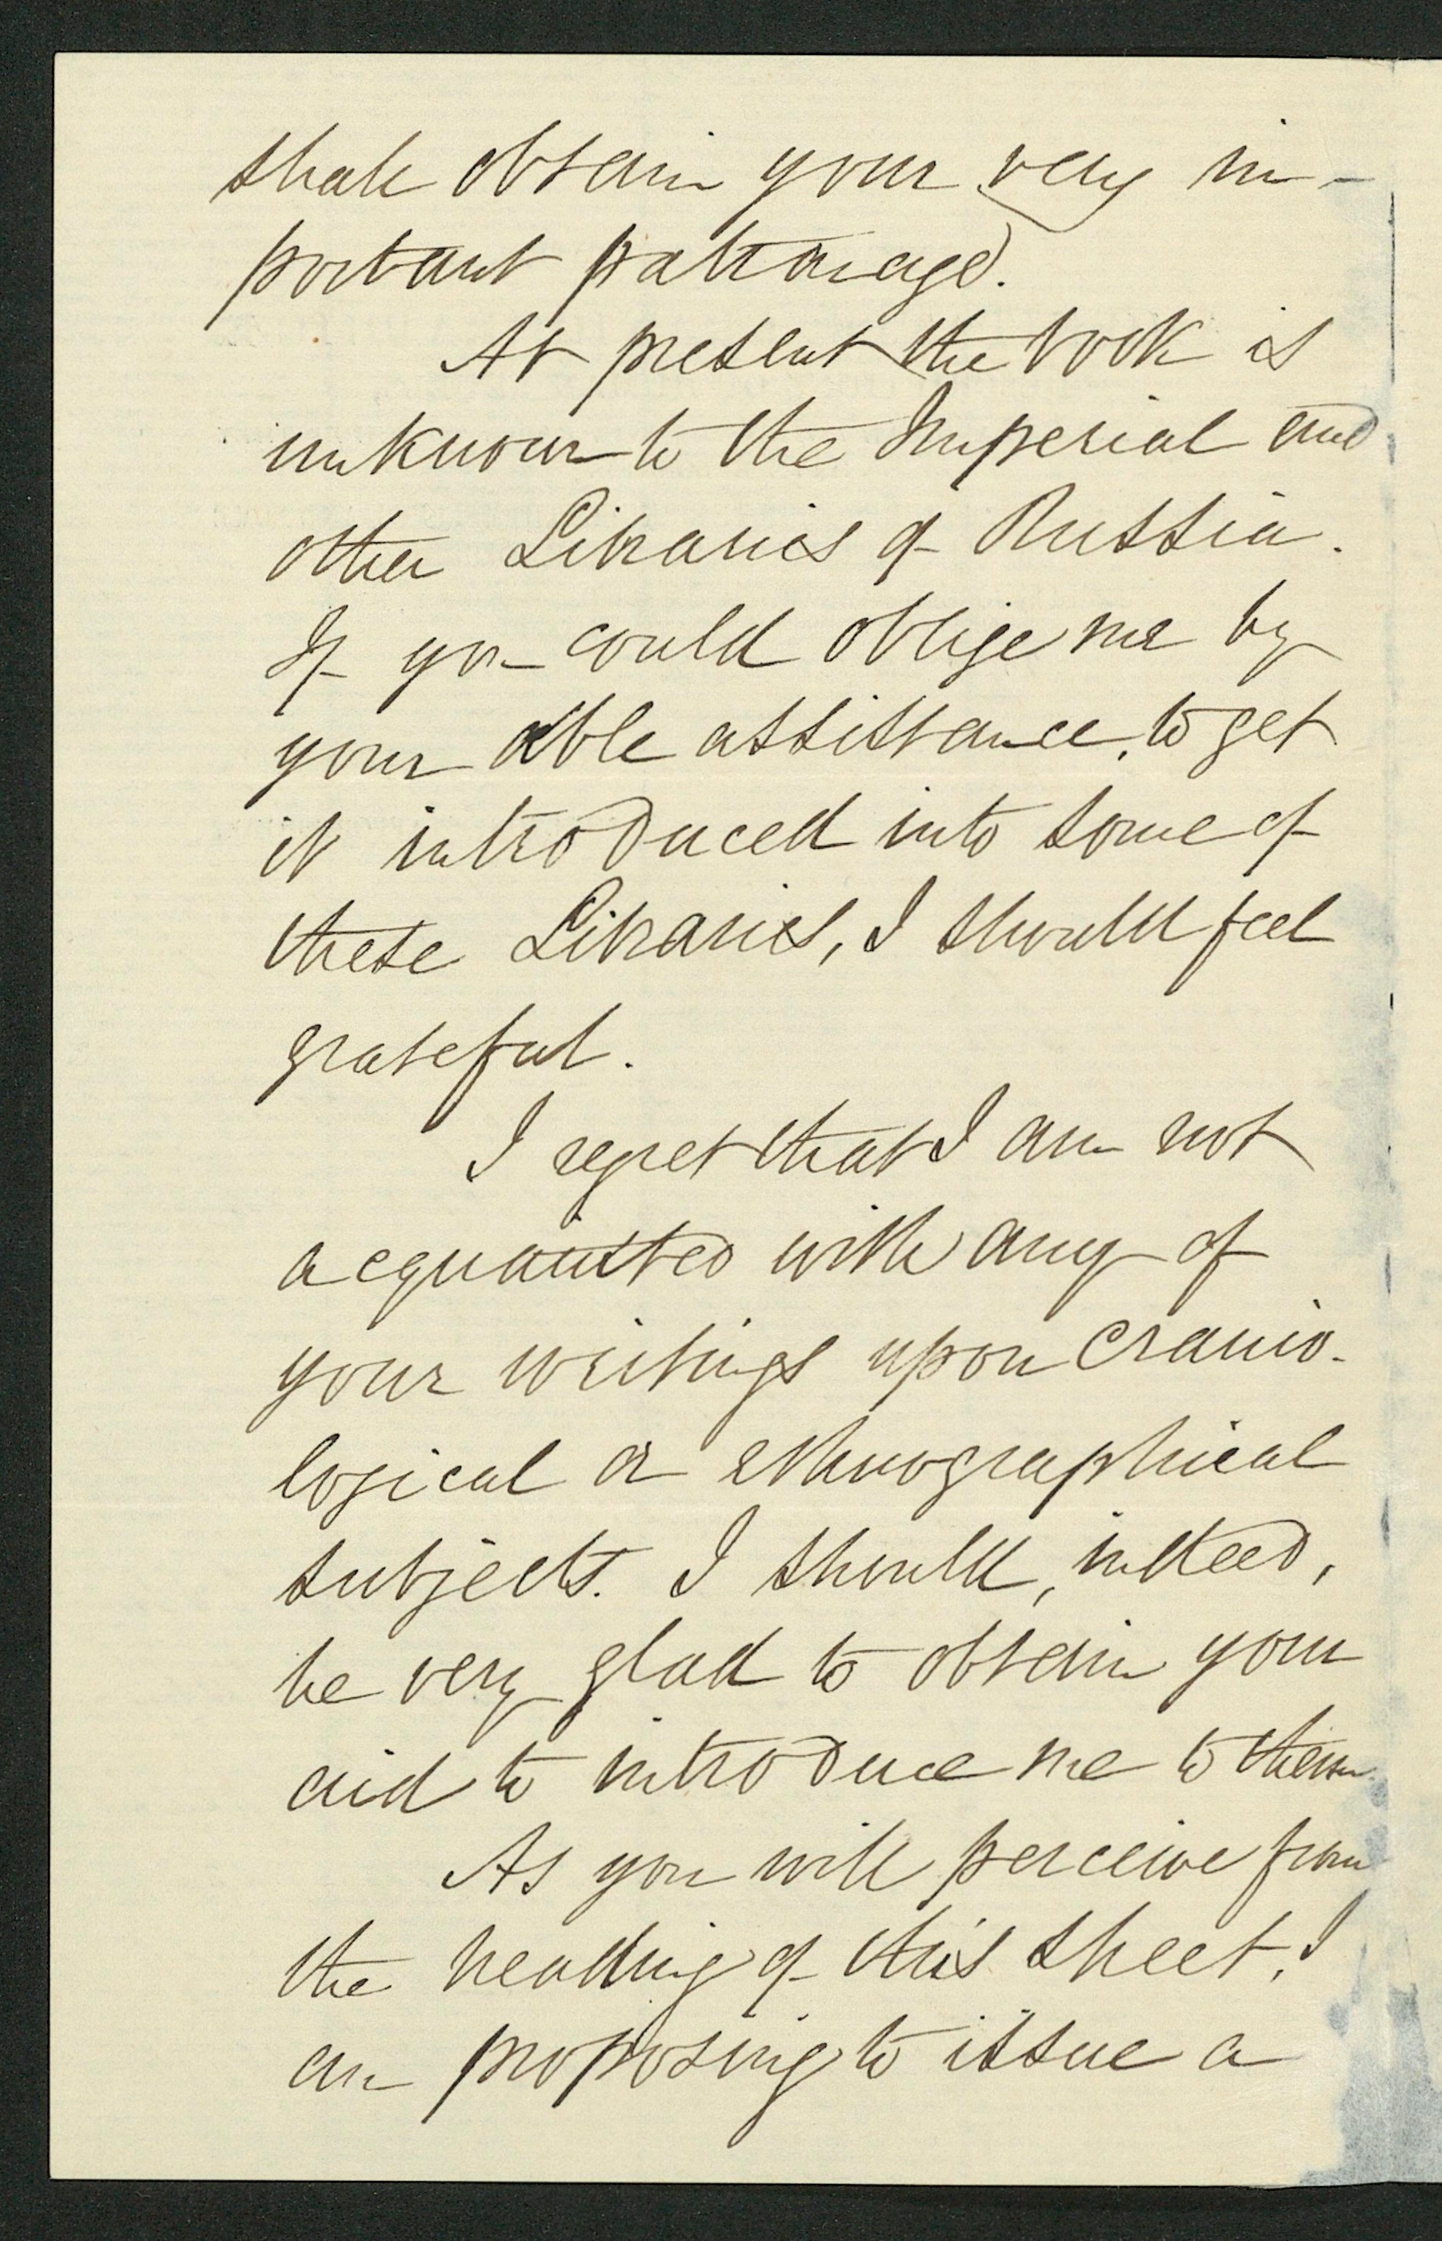 shall obtain your very im-
portant patronage.
At present the book is
unknown to the Imperial and
other Libraries of Russia.
If you could oblige me by
your able assistance, to get
it introduced into some of
these Libraries, I should feel
grateful.
I regret that I am not
acquainted with any of
your writings upon cranio-
logical or ethnographical
subjects. I should, indeed,
be very glad to obtain your
aid to introduce me to them.
As you will perceive from
the heading of this sheet, I
am proposing to issue a